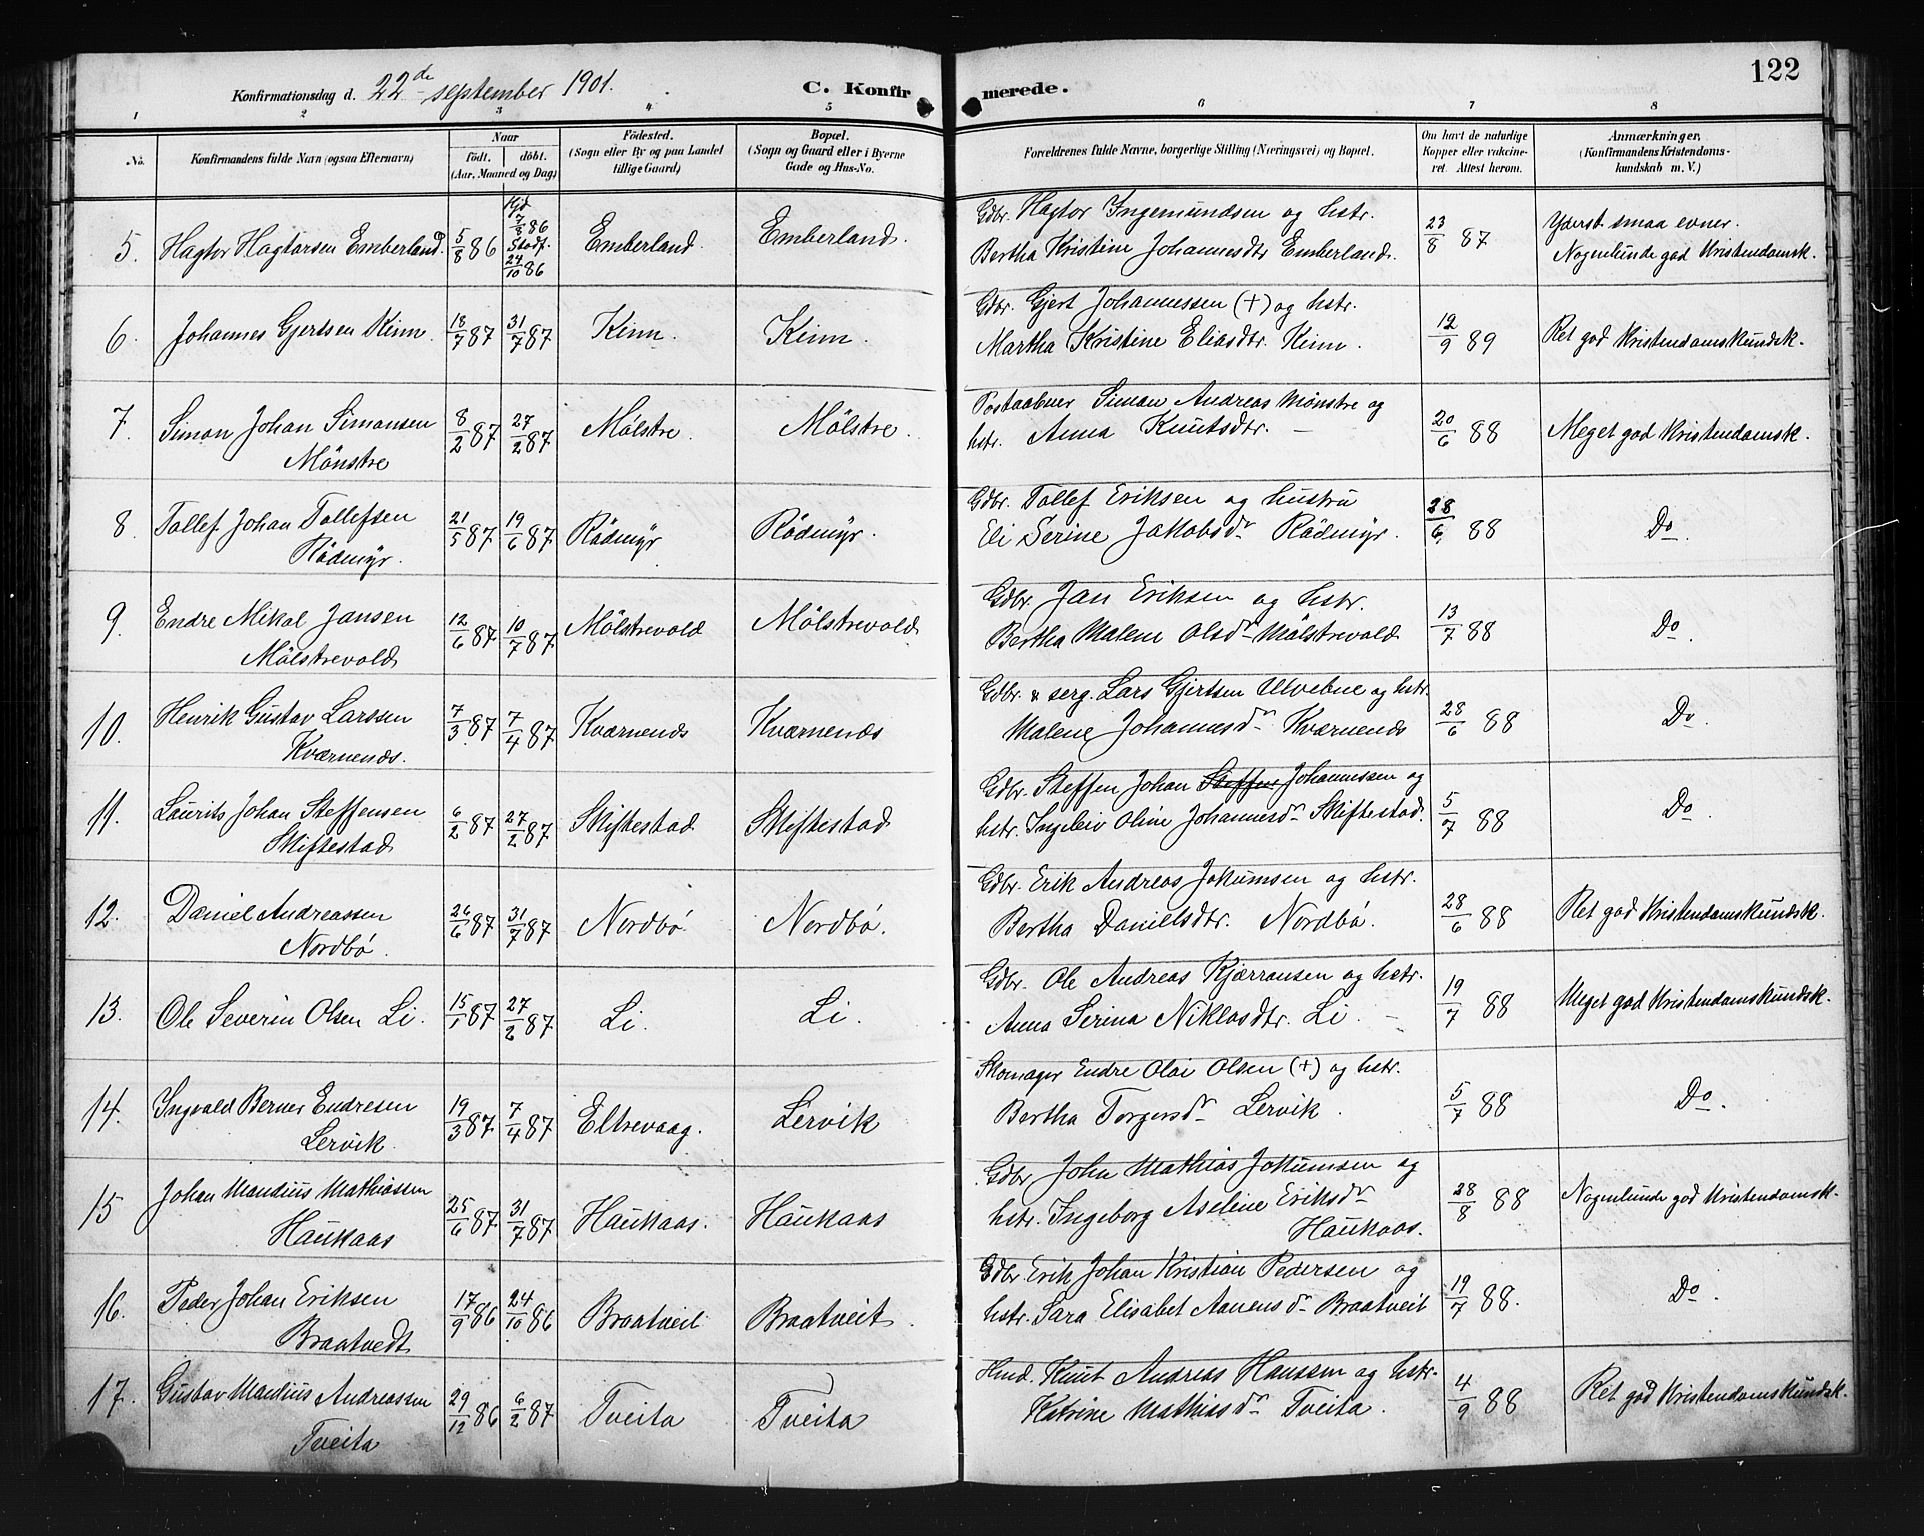 122
Konfirmationsdag d. 22de september 1901. C. Konfirmerede.
1 2 3 4 5 6 7 8
No. Konfirmandens fulde Navn (ogsaa Efternavn) Naar født. døbt. (Aar, Maaned og Dag) Födested. (Sogn eller By og paa Landet tillige Gaard) Bopæl. (Sogn og Gaard eller i Byerne Gade og Hus-No. Forældrenes fulde Navne, borgerlige Stilling (Næringsvei) og Bopæl. Om havt de naturlige Kopper eller vakcineret. Attest herom. Anmærkninger, (Konfirmandens Kristendomskundskab m. V.)
5. Hagtor Hagtorsen Emberland. 5/8 86 Hjd 7/8 86 Stadf. 24/10 86 Emberland. Emberland. Gdbr. Hagtor Ingemundsen og hstr.
Bertha Kristine Johannesdtr Emberland. 23/8 87 Yderst smaa evner.
Nogenlunde god Kristendomsk.
6. Johannes Gjertsen Kinn. 18/7 87 31/7 87 Kinn. Kinn. Gdbr. Gjert Johannessen (+) og hstr.
Martha Kristine Eliasdtr. Kinn. 12/9 89 Ret god Kristendomskundsk.
7. Simon Johan Simonsen
Mönstre 8/2 87 27/2 87 Mölstre. Mölstre. Postaabner Simon Andreas Mönstre og
hstr. Anna Knutsdtr. — 20/6 88 Meget god Kristendomsk.
8. Tollef Johan Tollefsen
Rödmyr. 21/5 87 19/6 87 Rödmyr Rödmyr. Gdbr. Tollef Eriksen og hustru
Eli Serine Jakobsdr Rödmyr. 28/6 88 Do.
9. Endre Mikal Jansen
Mölstrevold 12/6 87 10/7 87 Mölstrevold Mölstrevold Gdbr. Jan Eriksen og hstr.
Bertha Malene Olsdr Mölstrevold 13/7 88 Do.
10. Henrik Gustav Larssen
Kværnenæs. 7/3 87 7/4 87 Kværnenæs Kværnenæs Gdbr. & serg. Lars Gjertsen Ulvebne og hstr.
Malene Johannesdr Kværnenæs 28/6 88 Do.
11. Laurits Johan Steffensen
Skiftestad 6/2 87 27/2 87 Skiftestad Skiftestad Gdbr. Steffen Johan Steffen Johannessen og
hstr. Ingeleiv Oline Johannesdr Skiftestad. 5/7 88 Do.
12. Daniel Andreassen
Nordbø. 26/6 87 31/7 87 Nordbø. Nordbø. Gdbr. Erik Andreas Jokumsen og hstr.
Bertha Danielsdtr. Nordbø. 28/6 88 Ret god Kristendomskundsk.
13. Ole Severin Olsen Li. 15/1 87 27/2 87 Li. Li. Gdbr. Ole Andreas Kjærransen og hstr.
Anna Serina Niklasdtr. Li. — 19/7 88 Meget god Kristendomskundsk.
14. Ingvald Berner Endresen
Lervik. 19/3 87 7/4 87 Eltrevaag. Lervik Skomager Endre Olai Olsen (+) og hstr.
Bertha Torgersdr Lervik. 5/7 88 Do.
15 Johan Mandius Mathiassen
Haukaas 25/6 87 31/7 87 Haukaas. Haukaas Gdbr John Mathias Jokumsen og
hstr. Ingeborg Aseline Eriksdr
Haukaas. 28/8 88 Nogenlunde god Kristendomsk.
16. Peder Johan Eriksen
Braatvedt 17/9 86 24/10 86 Braatveit Braatveit. Gdbr. Erik Johan Kristian Pedersen og
hstr. Sara Elisabet Aanensdr Braatveit 19/7 88. Do.
17. Gustav Mandius Andreassen
Tveita 29/12 86 6/2 87 Tveita Tveita Hmd. Knut Andreas Hanssen og hstr.
Katrine Mathiasdr Tveita. 4/9 88 Ret god Kristendomskundsk.